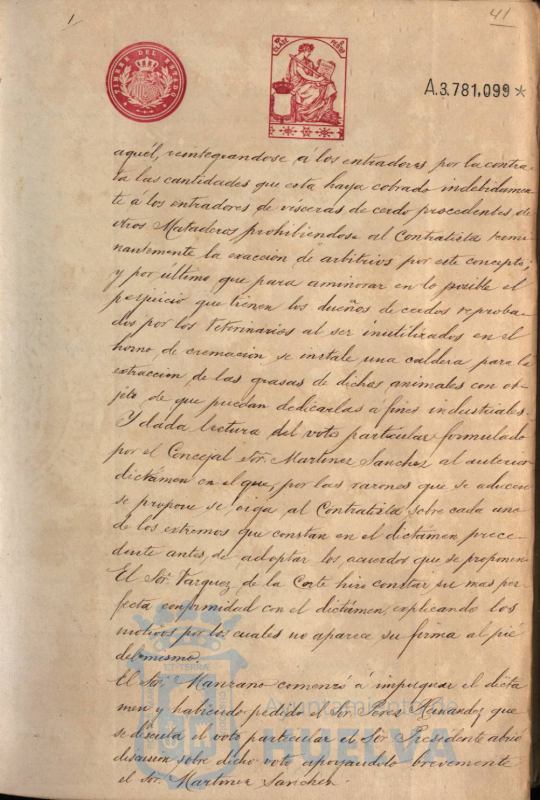 1
41
TIMBRE DEL ESTADO
CLASE
A.3.781,099*
aquél, reintegrandose á los entradores por la contra-
ta las cantidades que esta haya cobrado indebidamen-
te á los entradores de vísceras de cerdo procedentes de
otros Mataderos prohibiendose al Contratista termi-
nantemente la exacción de arbitrios por este concepto;
y por ultimo que para aminorar en lo posible el
perjuicio que tienen los dueños de cerdos reproba-
dos por los Veterinarios al ser inutilizados en el
horno de cremacion se instale una caldera para la
extraccion de las grasas de dichos animales con ob-
jeto de que puedan dedicarlas á fines industriales.
Y dada lectura del voto particular formulado
por el Concejal Sor. Martinez Sanchez al anterior
dictámen en el que, por las razones que se aducen
se propone se oiga al Contratista sobre cada uno
de los extremos que constan en el dictámen prece-
dente antes de adoptar los acuerdos que se proponen
El Sor. Vazquez de la Corte hizo constar su mas per-
fecta conformidad con el dictámen, explicando los
motivos por los cuales no aparece su firma al pié
del mismo.
El Sor. Manzano comenzó á impugnar el dicta
men y habiendo pedido el Sor. Perez Hernandez que
se discuta el voto particular el Sor Presidente abrió
discusion sobre dicho voto apoyandolo brevemente
el Sor. Martinez Sanchez.
Ayuntamiento de
HUELVA